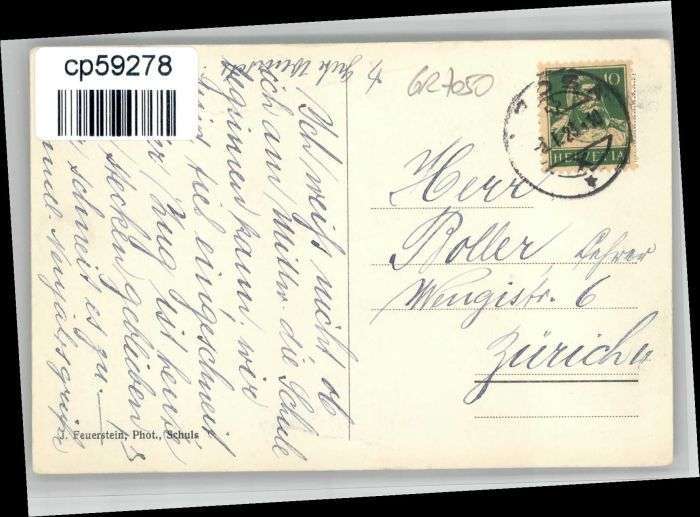 cp59278
GR7050
10
HELVETIA
Herr
Roller, Lehrer
Wengistr. 6
Zürich
Ich weiss nicht ob
ich am Mittw. die Schule
beginnen kann; wir
sind tief eingeschneit
Zug ist heute
stecken geblieben
schneit es zu.
und Neujahrsgrüsse
J. Feuerstein, Phot., Schuls